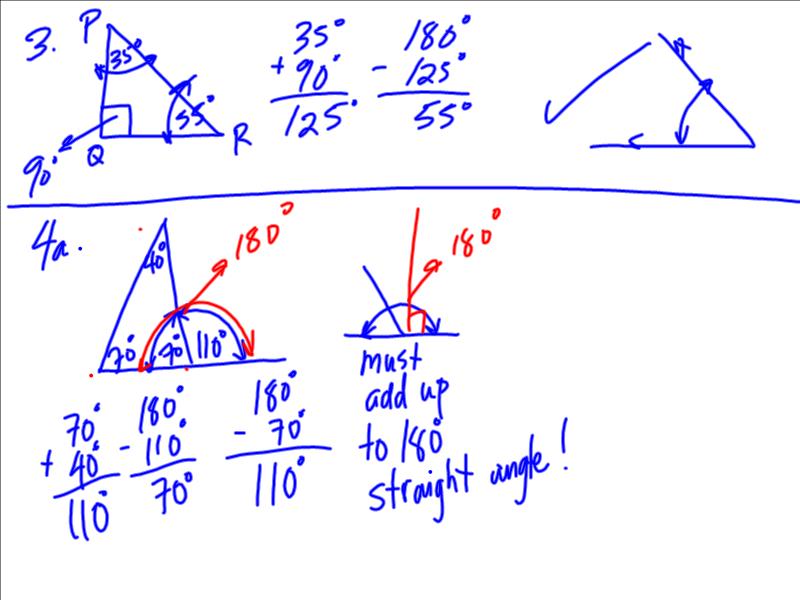 3.
P
35°
55°
Q
R
90°
35°
+ 90°
125°
180°
- 125°
55°
4a.
40°
70°
70°
110°
180°
70°
+ 40°
110°
180°
- 110°
70°
180°
- 70°
110°
180°
must
add up
to 180°
straight angle!